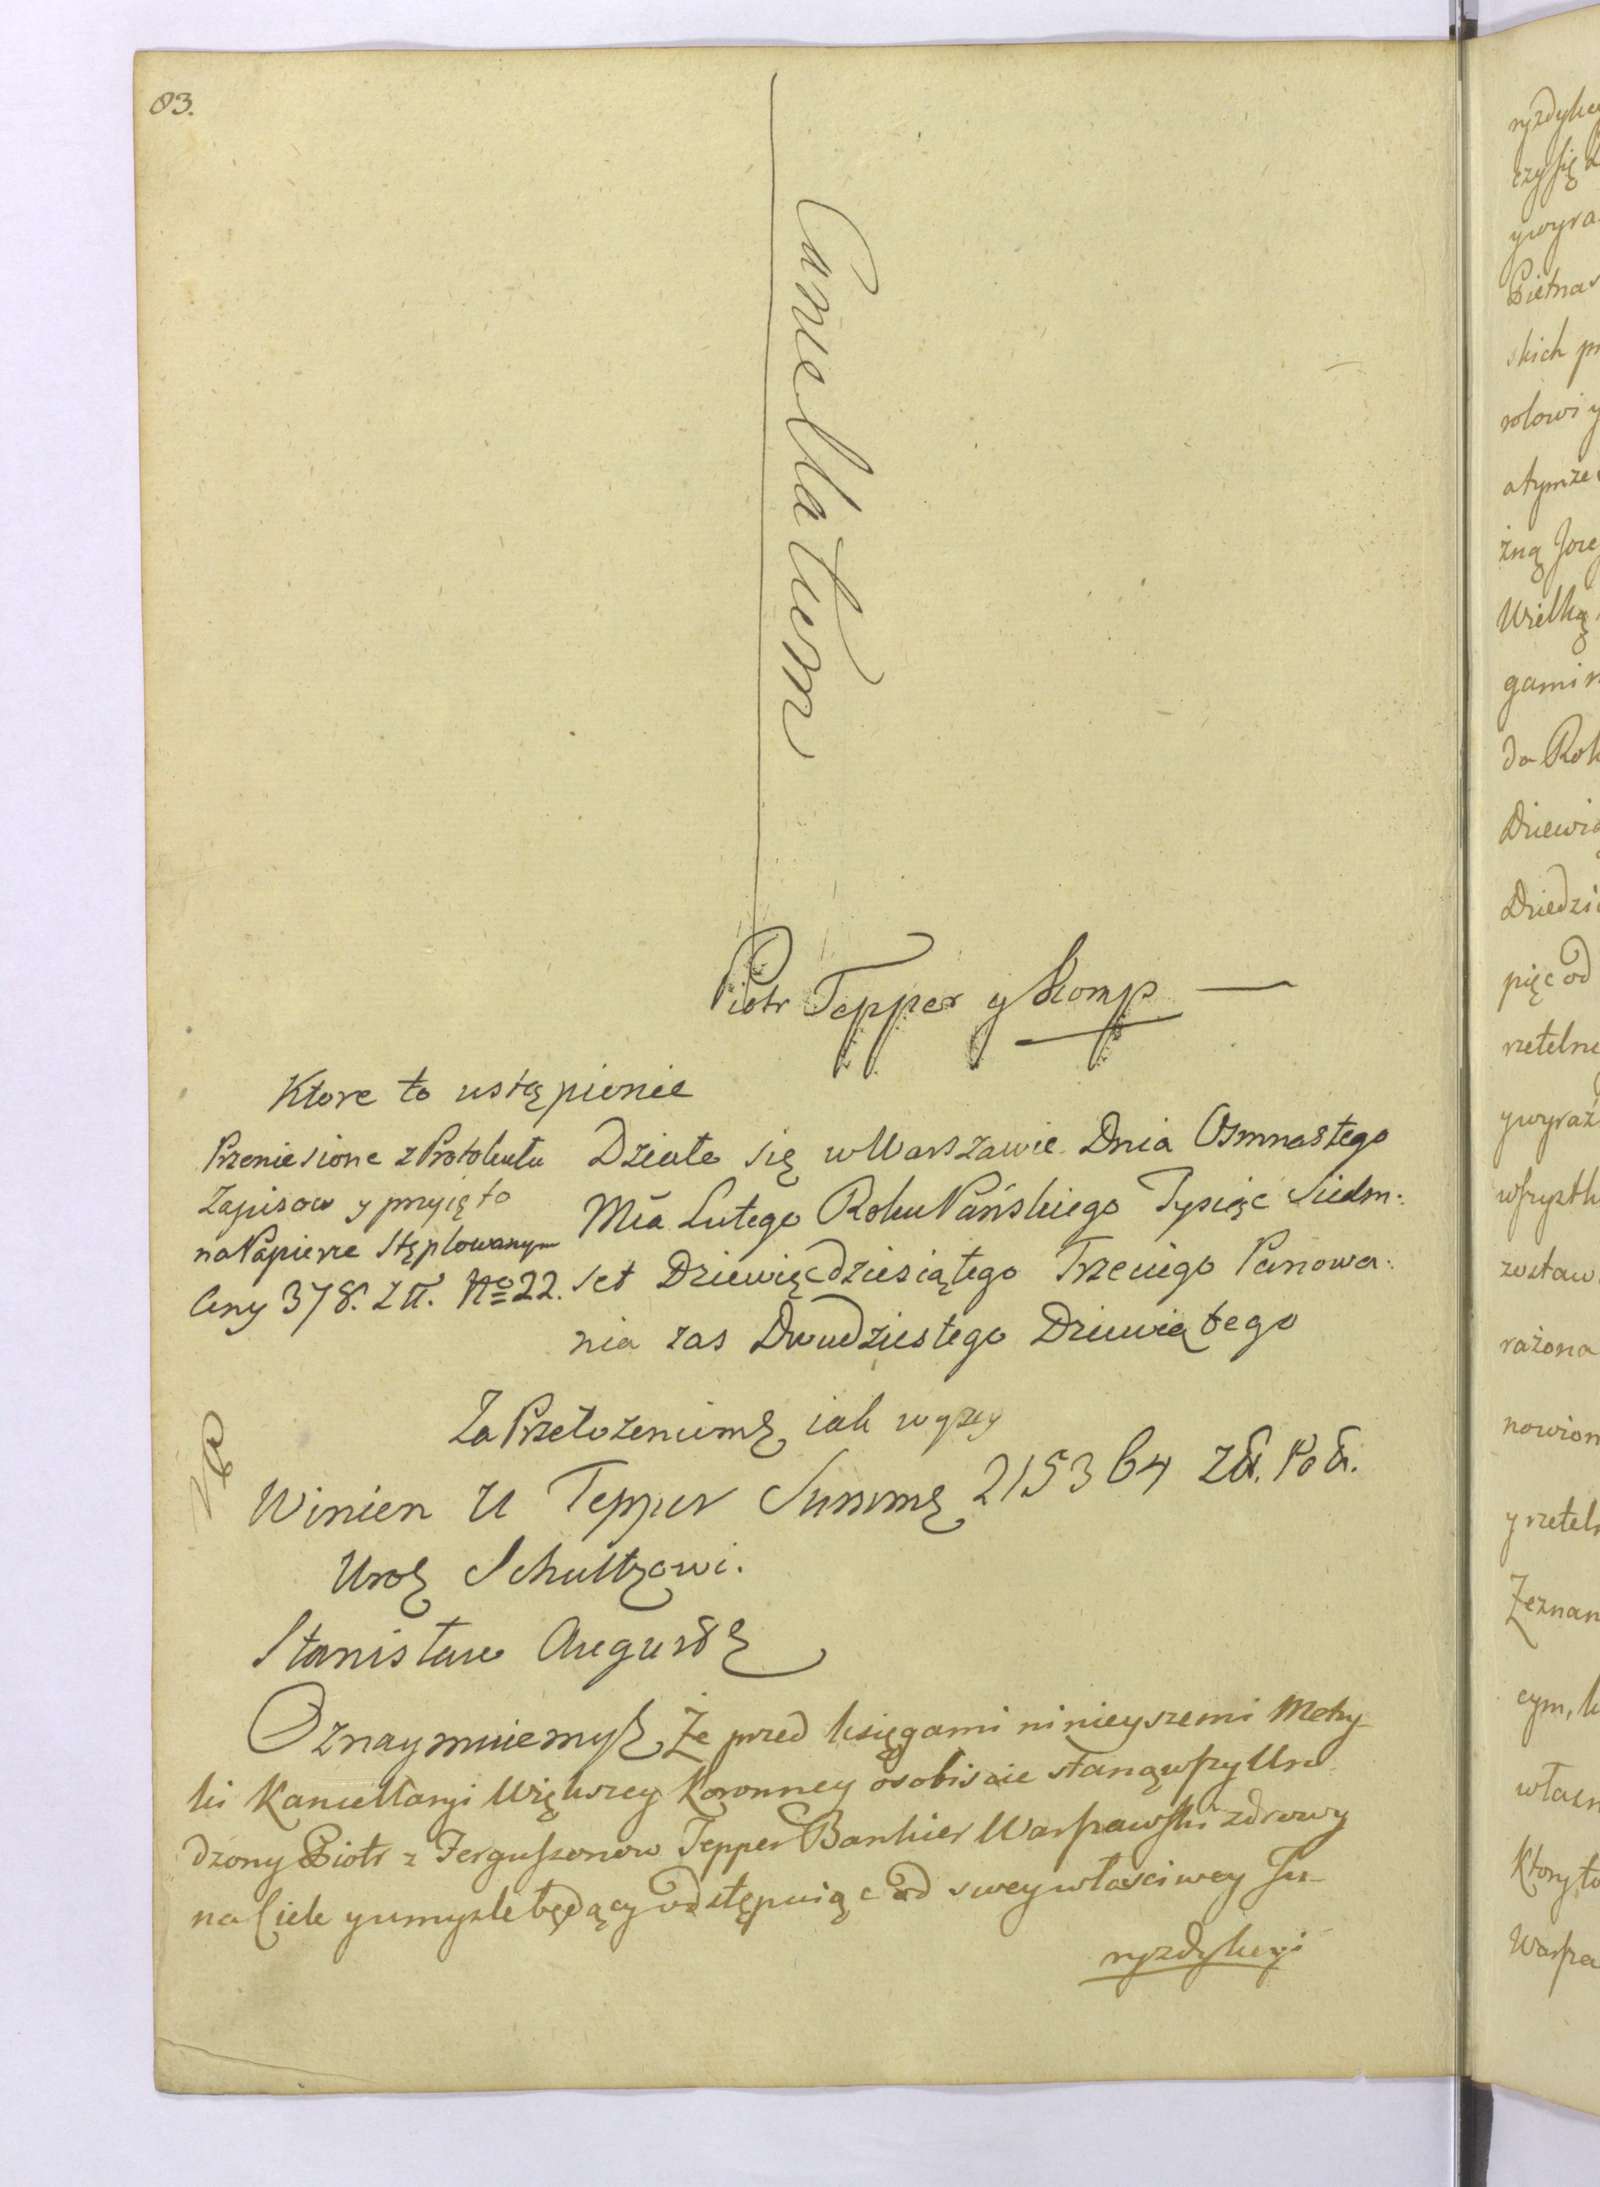 83.
Cancellatum
Piotr Tepper y Komp
Ktore to ustąpienie
Przeniesione z Protokułu
Zapisow y przyięto
na Papierze Stęplowanym
Ceny 378. Zł. No 22.
Działo się w Warszawie Dnia Osmnastego
Mca Lutego Roku Pańskiego Tysiąc Siedm:
set Dziewięćdziesiątego Trzeciego Panowa:
nia zas Dwudziestego Dziewiątego
Za Przełożeniem iak wyzey
Winien U Tepper Summę 215364 Zł. Pol.
Uro Schultzowi.
Stanisław August
Oznaymuiemy Że przed księgami ninieyszemi Metry-
ki Kancellaryi Większey Koronney osobiscie stanąwszy Uro
dzony Piotr z Fergussonow Tepper Bankier Warszawski zdrowy
na Ciele y umyśle będący odstępuiąc od swey właściwey Ju-
ryzdykcyi
ryzdykcy
czy się
y wyra
Pietnas
skich pr
rolowi y
a tymże
żną
Wielką
gami n
do Rok
Dziewię
Dziedzi
pięc od
rzetelne
y wyraź
wszystk
zostaw
rażona
nowion
y rzetel
Zeznan
cym, k
własn
Ktory to
Warsza